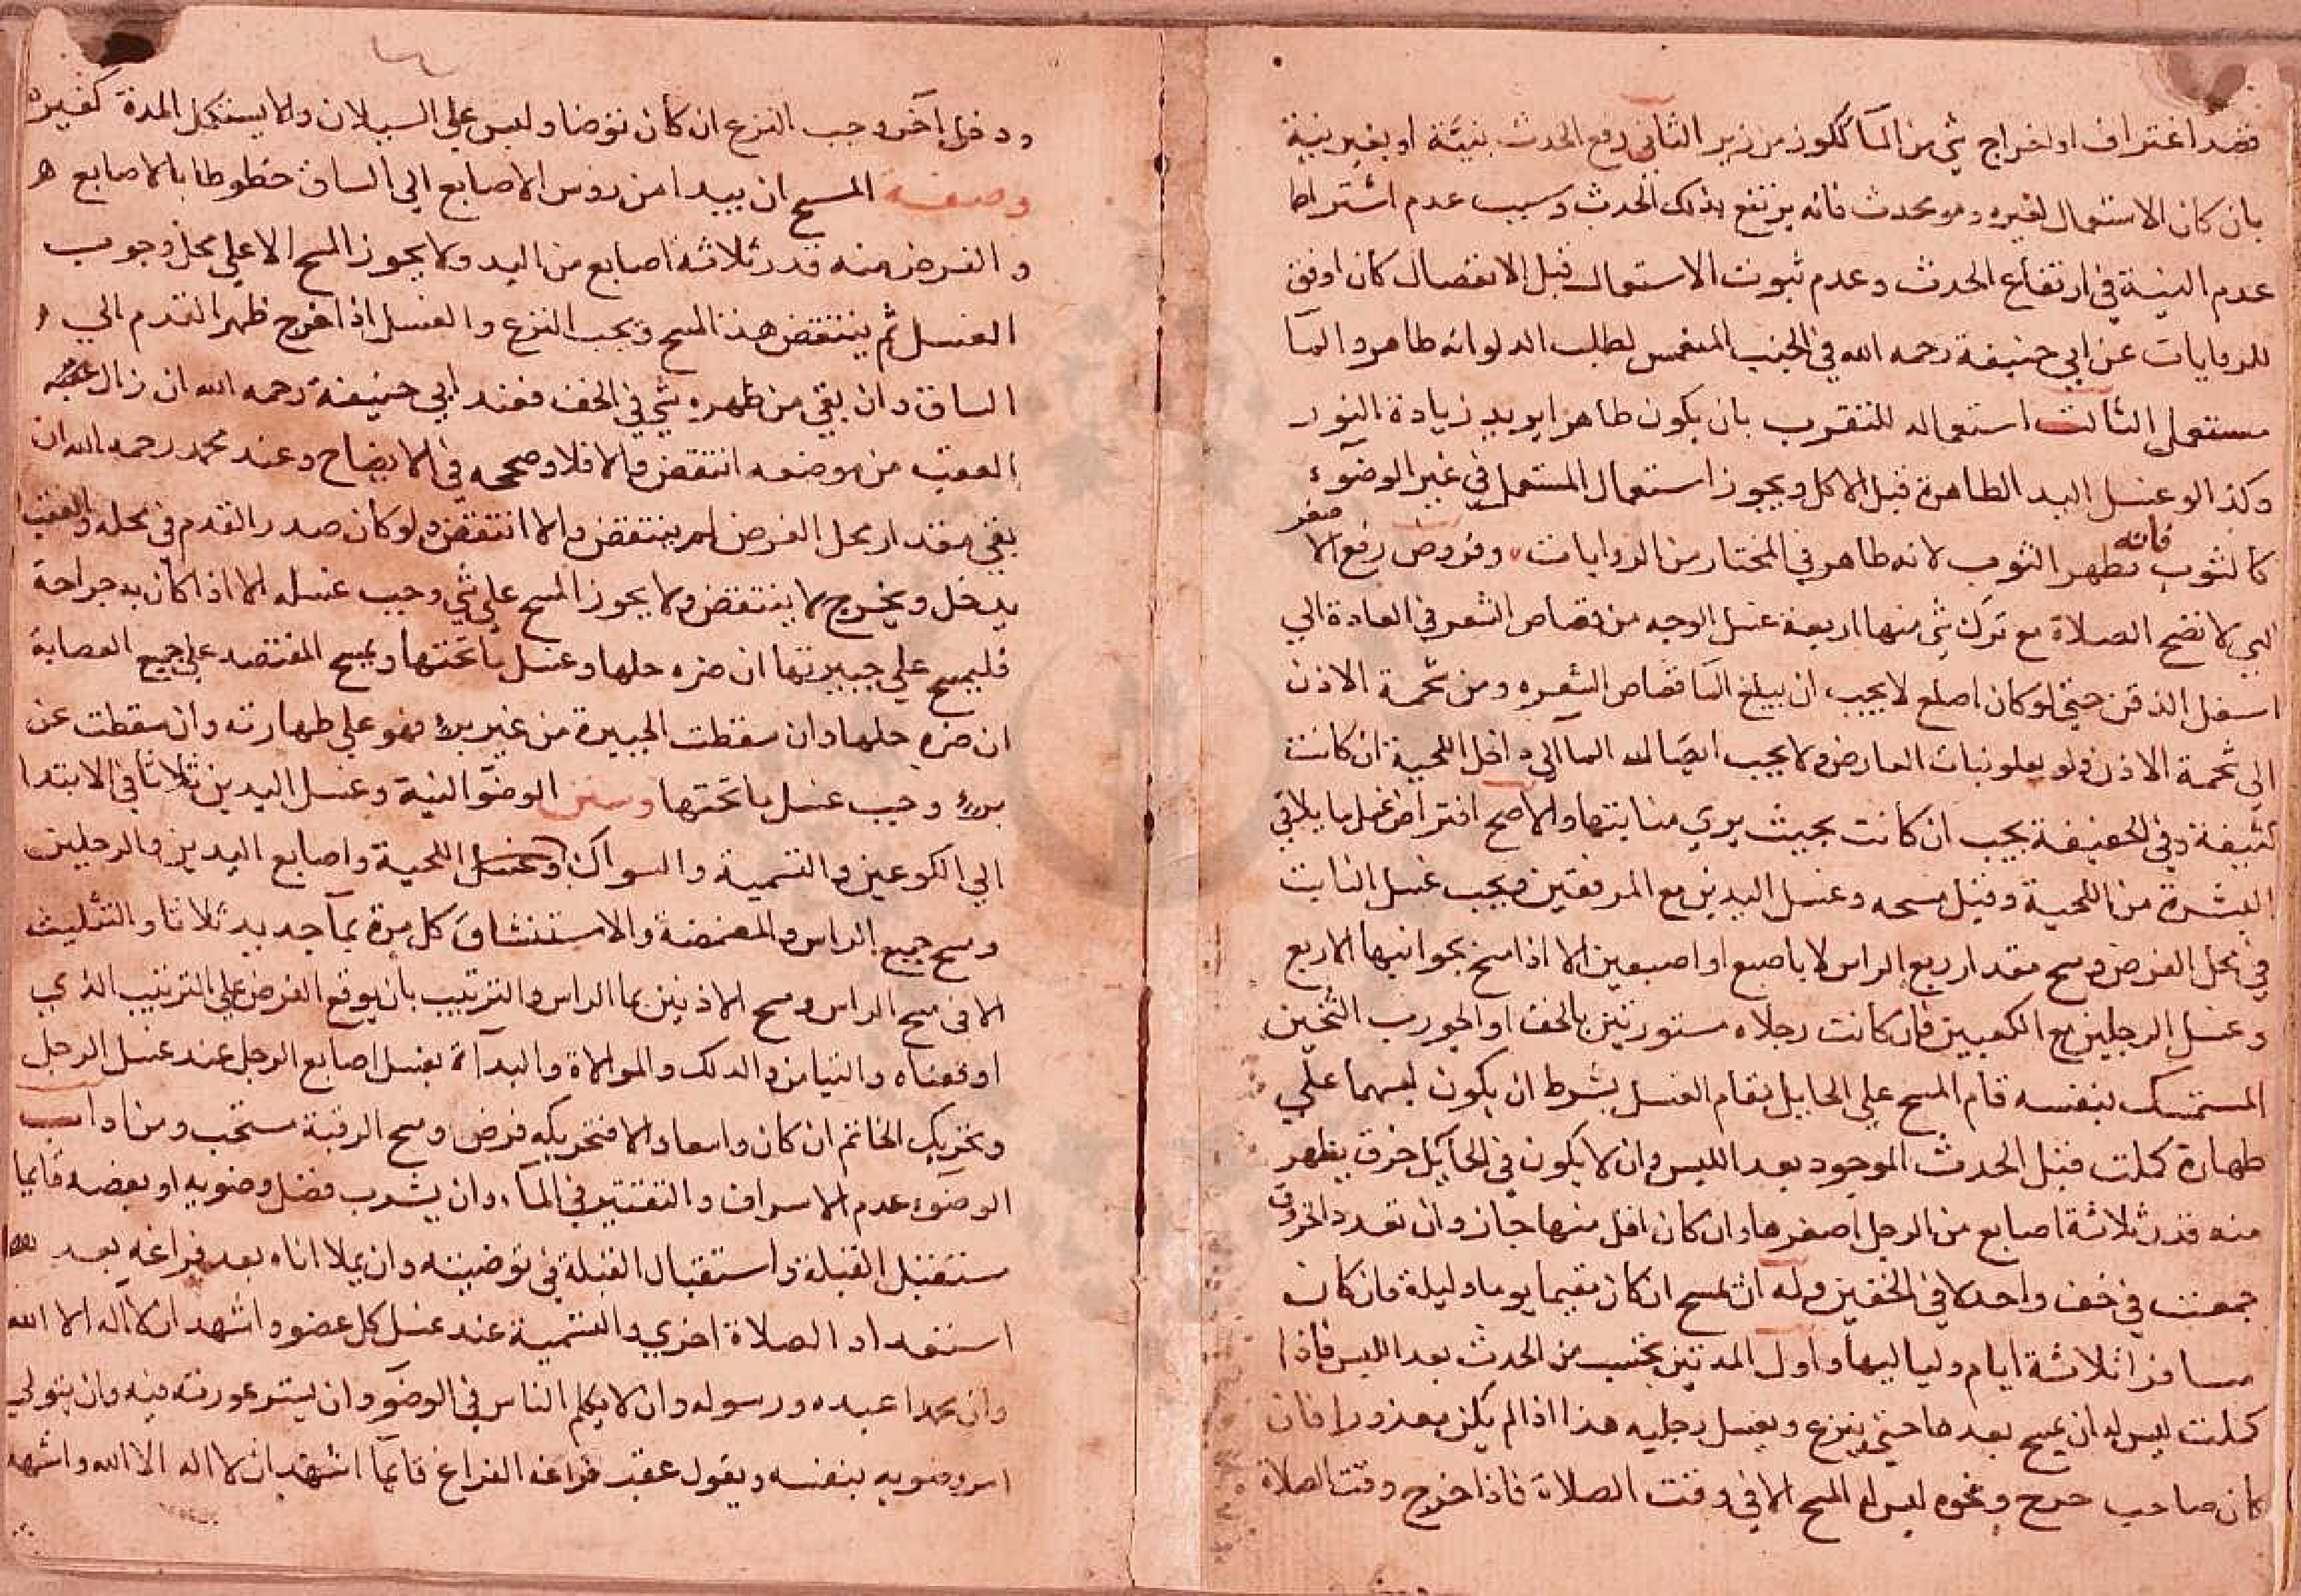 قصد اغتراف او اخراج شي من الماء ككوز من زير الثاني رفع الحدث بنية او بغير نية
بان كان الاستعمال لغيره وهو محدث فانه يرتفع بذلك الحدث وسبب عدم اشتراط
عدم النية في ارتفاع الحدث وعدم ثبوت الاستعمال قبل الانفصال كان اوفق
للروايات عن ابي حنيفة رحمه الله في الجنب المنغمس لطلب الدلو انه طاهر والمآ
مستعمل الثالث استعماله للتقرب بان يكون طاهرا يريد زيادة النور
وكذا لو غسل اليد الطاهرة قبل الاكل ويجوز استعمال المستعمل في غير الوضوء
كالثوب فانه يطهر الثوب لانه طاهر في المختار من الروايات وفروض رفع الاصغر
التي لا تصح الصلاة مع ترك شي منها اربعة غسل الوجه من قصاص الشعر في العادة الي
اسفل الذقن حتي لو كان اصلع لا يجب ان يبلغ المآ قصاص الشعره ومن شحمة الاذن
الي شحمة الاذن ولو يعلو نبات العارض ولا يجب ايصال المآ الي داخل اللحية ان كانت
كثيفة وفي الخفيفة يجب ان كانت بحيث يري منابتها والاصح افتراض غسل ما يلاقي
البشرة من اللحية وقيل مسحه وغسل اليدين مع المرفقين ويجب غسل النابت
في محل الفرض ومسح مقدار ربع الراس لا باصبع او اصبعين الا اذا مسح بجوانبها الاربع
وغسل الرجلين مع الكعبين فان كانت رجلاه مستورتين بالخف او الجورب الثخين
المستمسك بنفسه قام المسح علي الحايل مقام الغسل بشرط ان يكون لبسهما علي
طهارة كملت قبل الحدث الموجود بعد اللبس وان لا يكون في الحآيل خرق يظهر
منه قدر ثلاثة اصابع من الرجل اصغرها وان كان اقل منها جاز وان تعدد الخروق
جمعت في خف واحد لا في الخفين وله ان يمسح ان كان مقيما يوما وليلة فان كان
مسافرا ثلاثة ايام ولياليها واول المدتين يحتسب من الحدث بعد اللبس فاذا
كملت ليس له ان يمسح بعدها حتي ينزع ويغسل رجليه هذا اذا لم يكن معذورا فان
كان صاحب جرح ونحوه ليس له المسح الا في وقت الصلاة فاذا خرج وقت الصلاة
ودخل آخر وجب النزع ان كان توضا ولبس علي السيلان ولا يستكمل المدة كغيره
وصفة المسح ان يبدا من روس الاصابع الي الساق خطوطا بالاصابع
والفرض منه قدر ثلاثة اصابع من اليد ولا يجوز المسح الا علي محل وجوب
الغسل ثم ينتقض هذا المسح ويجب النزع والغسل اذا خرج ظهر القدم الي
الساق وان بقي من ظهره شي في الخف فعند ابي حنيفة رحمه الله ان زال عقبه
العقب من موضعه انتقض والا فلا وصححه في الايضاح وعند محمد رحمه الله ان
بقي مقدار محل الفرض لم ينتقض والا انتقض ولو كان صدر القدم في محله والعقب
يدخل ويخرج لا ينتقض ولا يجوز المسح علي شي وجب غسله الا اذا كان به جراحة
فليمسح علي جبيرتها ان ضره حلها وغسل ما تحتها ويمسح المفتصد علي جميع العصابة
ان ضره حلها وان سقطت الجبيرة من غير برء فهو علي طهارته وان سقطت عن
برء وجب غسل ما تحتها وسنن الوضو النية وغسل اليدين ثلاثا في الابتدا
الي الكوعين والتسمية والسواك وغسل اللحية واصابع اليدين والرجلين
ومسح جميع الراس والمضمضة والاستنشاق كل مرة بمآ جديد ثلاثا والتثليث
الا في مسح الراس ومسح الاذنين بما الراس والترتيب بان يوقع الفرض علي الترتيب الذي
اوقعناه والتيامن والدلك والموالاة والبدآة بغسل اصابع الرجل عند غسل الرجل
وتحريك الخاتم ان كان واسعا والا فتحريكه فرض ومسح الرقبة مستحب ومن اداب
الوضوء عدم الاسراف والتقتير في المآء وان يشرب فضل وضويه او بعضه قايما
مستقبل القبلة واستقبال القبلة في توضيه وان يملا اناه بعد فراغه بعد
استعداد الصلاة اخري والتسمية عند غسل كل عضو واشهد ان لا اله الا الله
وان محمدا عبده ورسوله وان لا يكلم الناس في الوضو وان يستر عورته فيه وان يتولي
امر وضويه بنفسه ويقول عقب فراغه الفراغ قايما اشهد ان لا اله الا الله واشهد